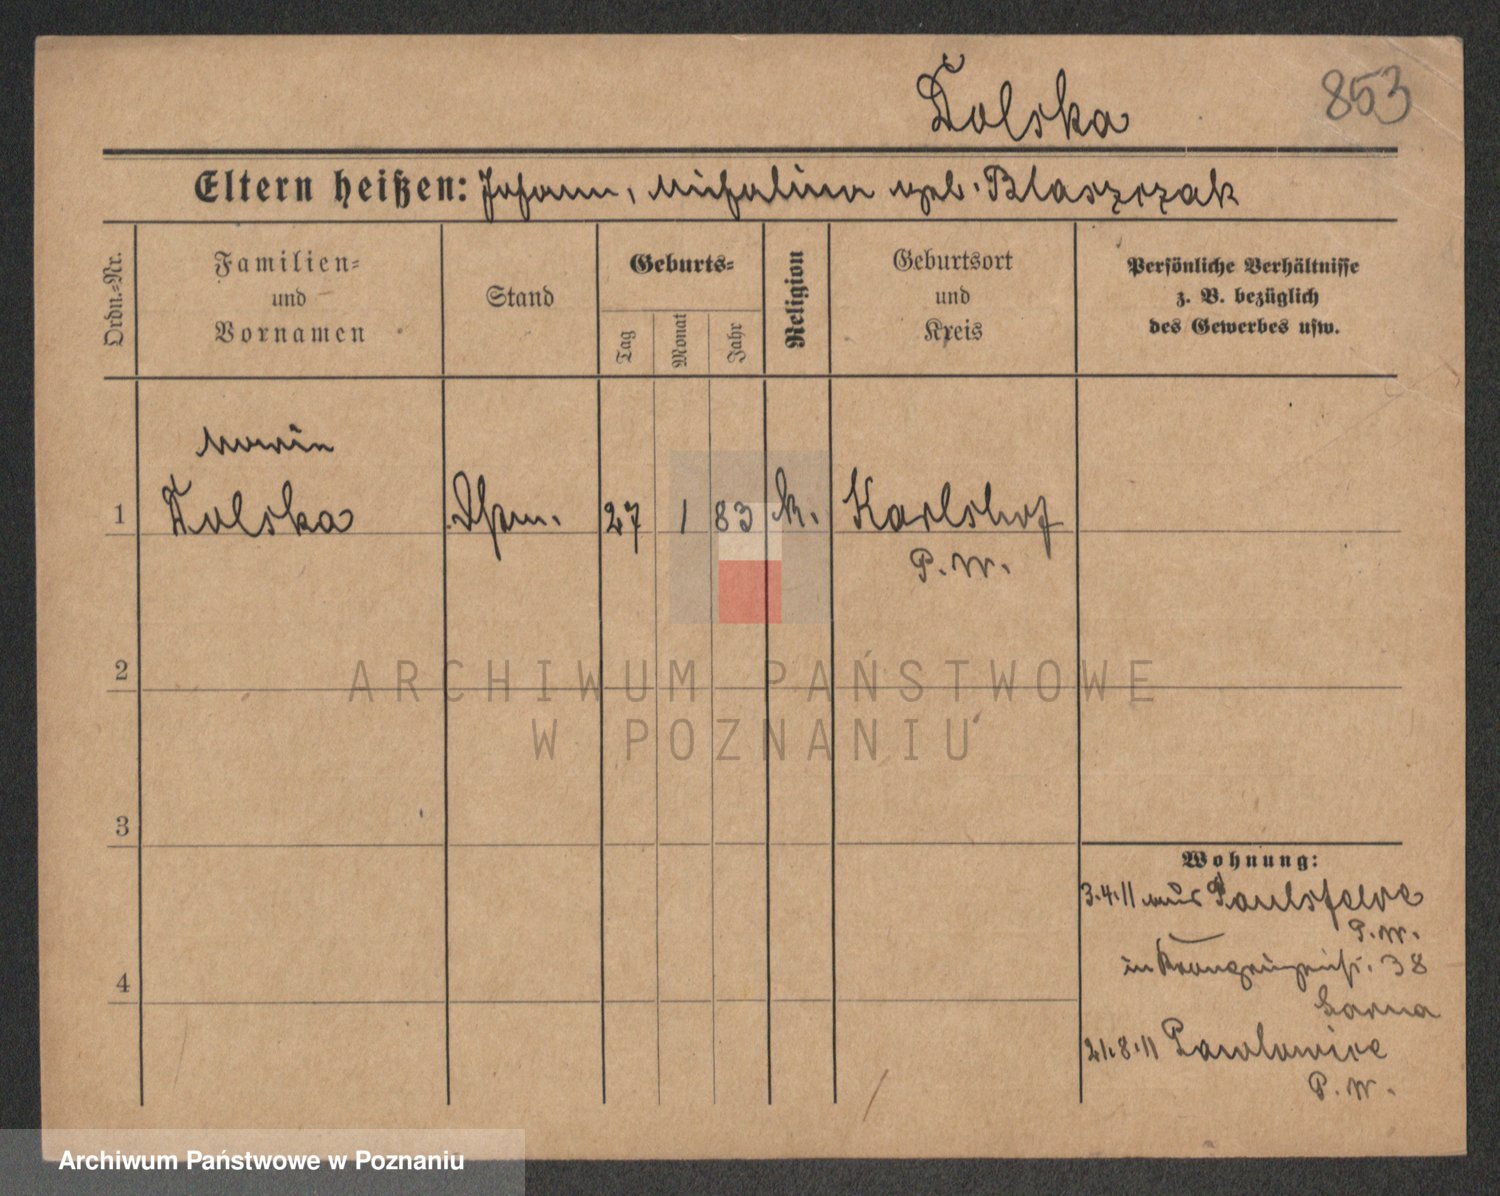 Tolska
853
Eltern heißen: Johann, Michalina geb. Blaszczak
Ordn.=Nr.
Familien=
und
Vornamen
Stand
Geburts=
Tag
Monat
Jahr
Religion
Geburtsort
und
Kreis
Persönliche Verhältnisse
z. B. bezüglich
des Gewerbes usw.
Maria
1 Tolska 27 1 83 k. Karlshof
P. W.
2
3
4
Wohnung:
3.4.11 aus Paulsfelde
P. W.
in Kronprinzenstr. 38
21.8.11 Pawlowice
P. W.
ARCHIWUM PAŃSTWOWE
W POZNANIU
Archiwum Państwowe w Poznaniu